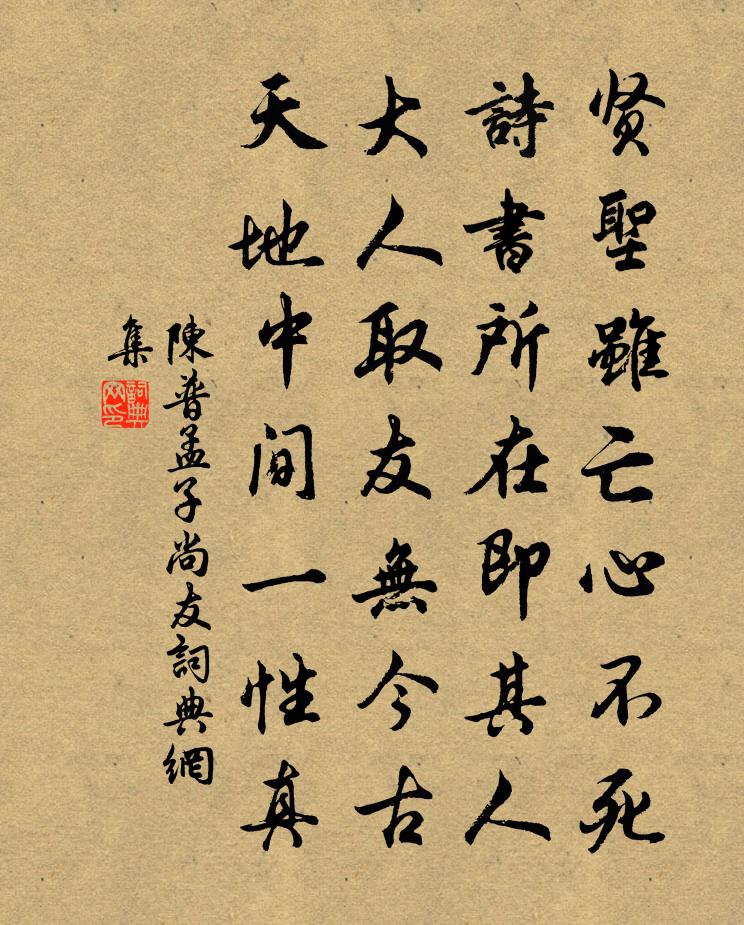 贤聖雖亡心不死
詩書所在即其人
大人取友無今古
天地中间一性真
陳普孟子尚友詞典網
集
詞典
网印